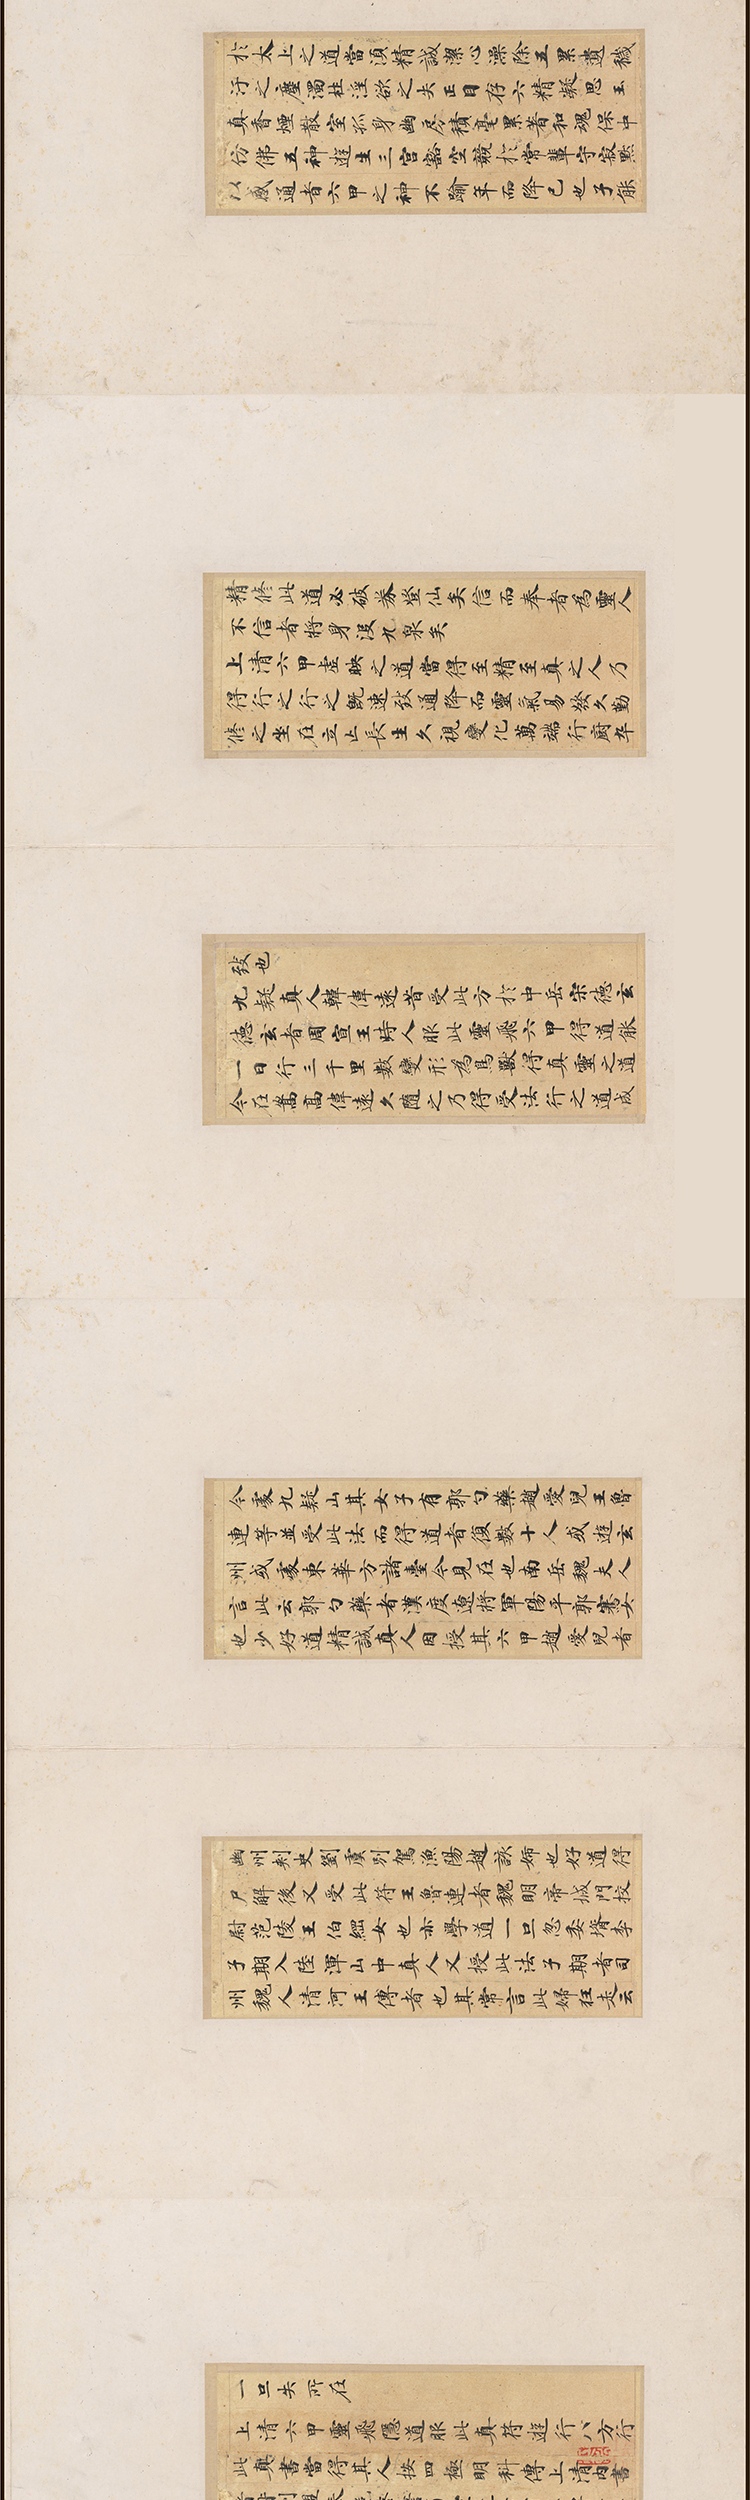 於太上之道當須精誠潔心澡除五累遺穢
汙之塵濁杜淫欲之失正目存六精凝思玉
真香煙散室孤身幽房積毫累著和魂保中
仿佛五神遊生三宮豁空競於常輩守寂默
以感通者六甲之神不踰年而降己也子能
精修此道必破券登仙矣信而奉者為靈人
不信者將身沒九泉矣
上清六甲虛映之道當得至精至真之人乃
得行之行之既速致通降而靈氣易發久勤
修之坐在立亡長生久視變化萬端行廚卒
致也
九疑真人韓偉遠昔受此方於中岳宋德玄
德玄者周宣王時人服此靈飛六甲得道能
一日行三千里數變形為鳥獸得真靈之道
今在嵩高偉遠久隨之乃得受法行之道成
今處九疑山其女子有郭勺藥趙愛兒王魯
連等並受此法而得道者復數十人或遊玄
州或處東華方諸臺今見在也南岳魏夫人
言此云郭勺藥者漢度遼將軍陽平郭騫女
也少好道精誠真人因授其六甲趙愛兒者
幽州刺史劉虞別駕漁陽趙該姉也好道得
尸解後又受此符王魯連者魏明帝城門校
尉范陵王伯綱女也亦學道一旦忽委壻李
子期入陸渾山中真人又授此法子期者司
州魏人清河王傳者也其常言此婦狂走云
一旦失所在
上清六甲靈飛隱道服此真符遊行八方行
此真書當得其人按四極明科傳上清內書